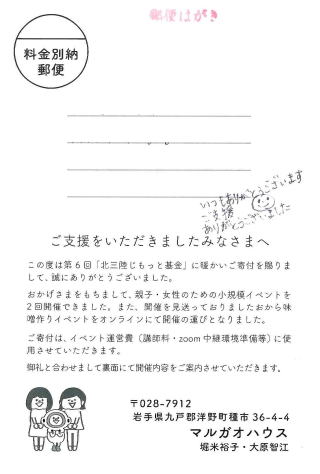 郵便はがき
料金別納
郵便
いつもありがとうございます
ご支援
ありがとうございました
ご支援をいただきましたみなさまへ
この度は第6回「北三陸じもっと基金」に暖かいご寄付を賜りま
して、誠にありがとうございます。
おかげさまをもちまして、親子・女性のための小規模イベントを
2回開催できました。また、開催を見送っておりましたおから味
噌作りイベントをオンラインにて開催の運びとなりました。
ご寄付は、イベント運営費(講師料・zoom中継環境準備等)に使
用させていただきます。
御礼と合わせまして裏面にて開催内容をご案内させていただきます。
〒028-7912
岩手県九戸郡洋野町種市36-4-4
マルガオハウス
堀米裕子・大原智江